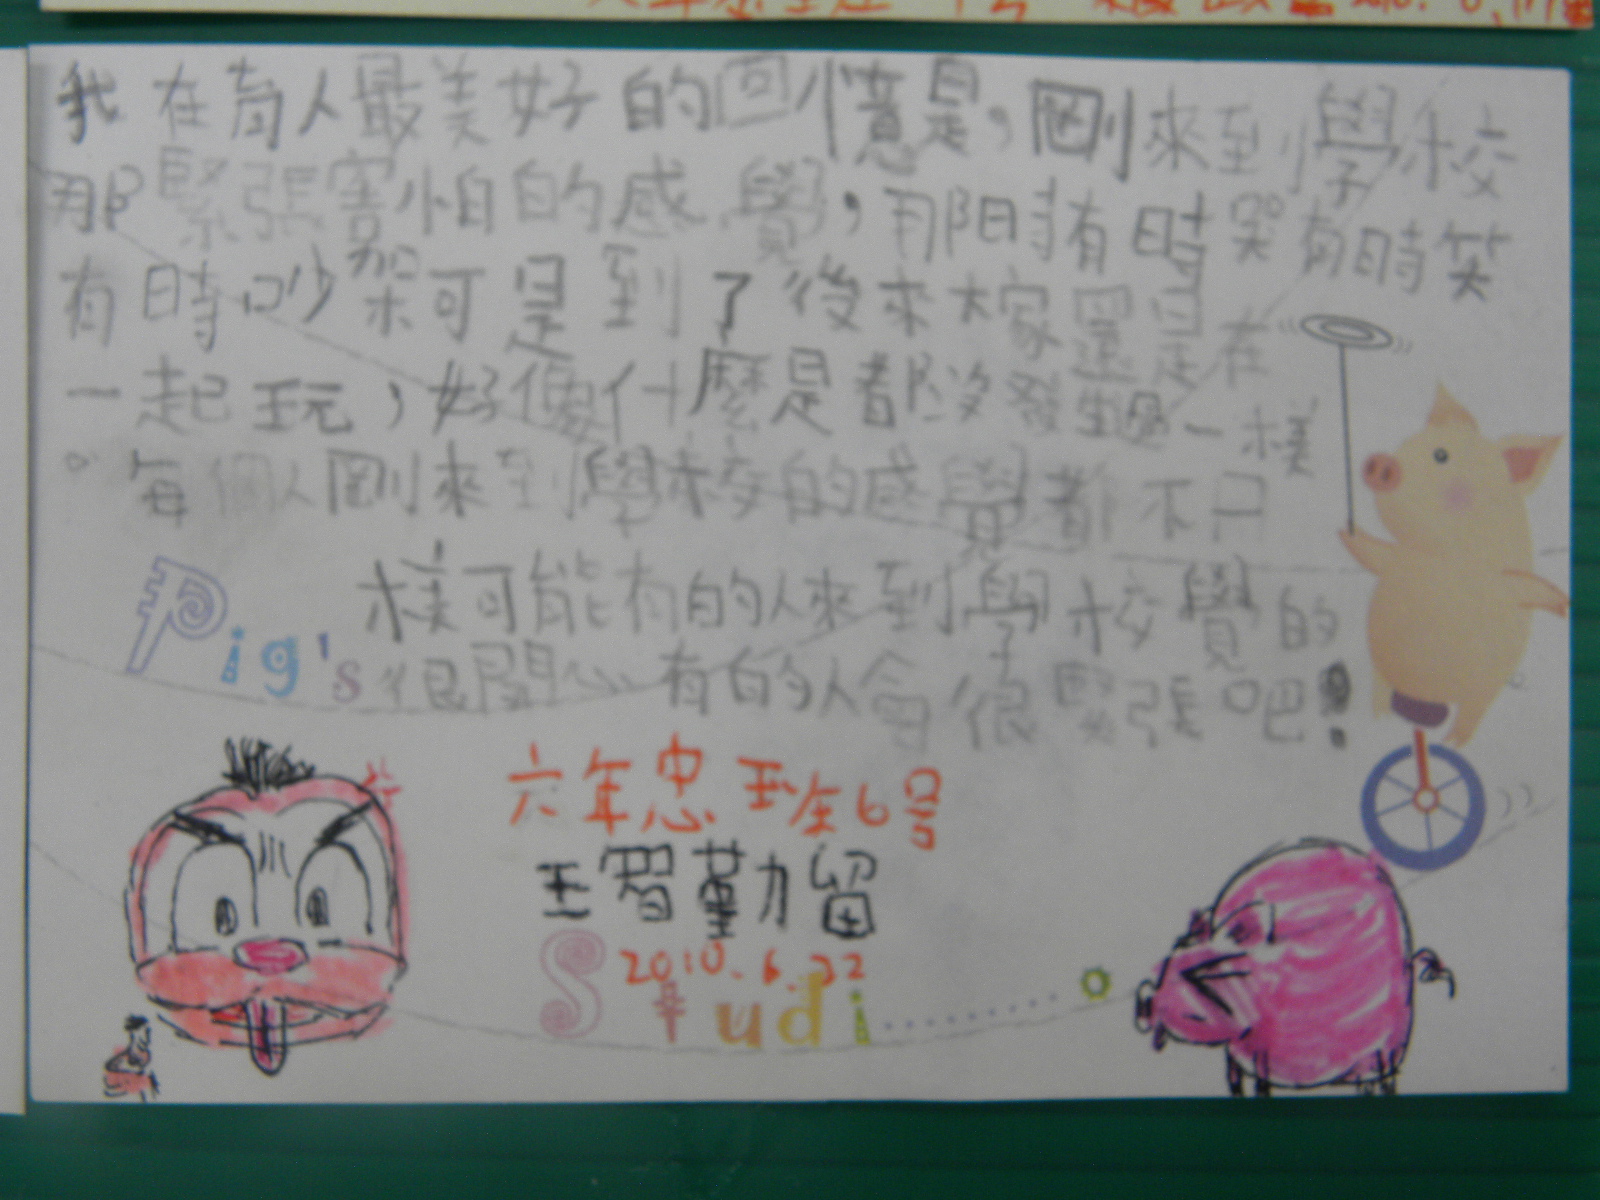 我在育人最美好的回憶是，剛來到學校
那緊張害怕的感覺，那時有時哭有時笑
有時吵架可是到了後來大家還是在
一起玩，好像什麼是都沒發生過一樣
。每個人剛來到學校的感覺都不只
樣可能有的人來到學校覺的
很開心有的人會很緊張吧！
Pig's
六年忠班坐6號
王智勤留
2010.6.22
Studi